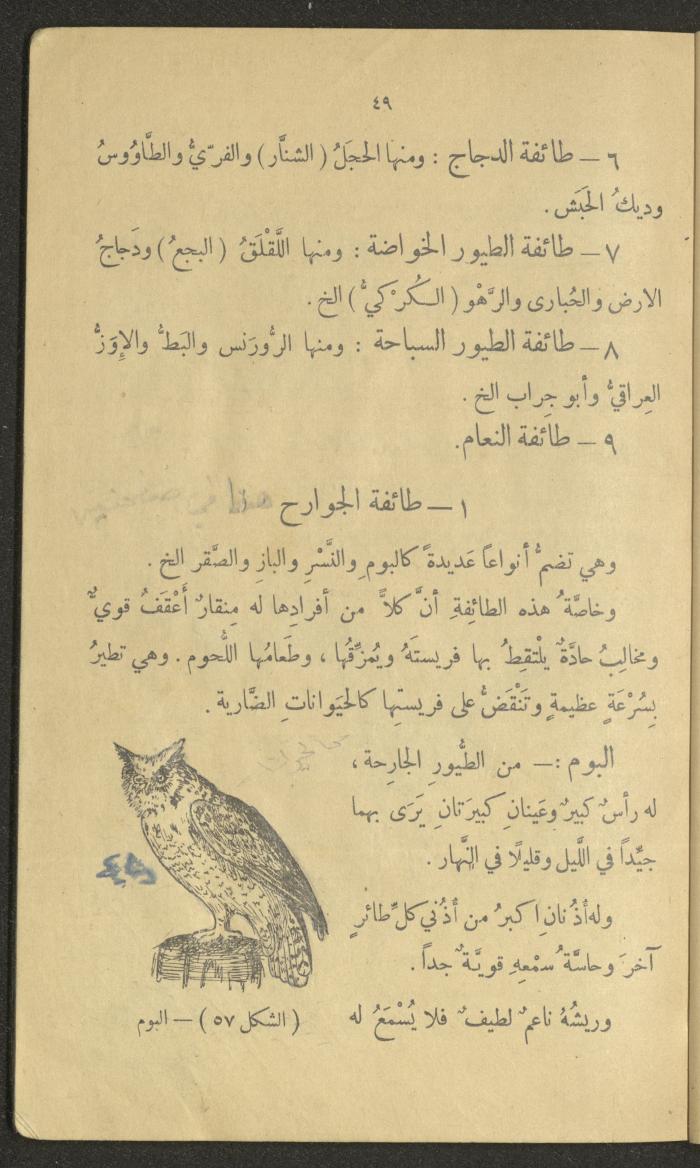 ٤٩
٦ – طائفة الدجاج : ومنها الحجَلُ (الشنَّار) والفرّيُّ والطَّاوُوسُ
وديكُ الحَبَش .
٧ – طائفة الطيور الخواضة : ومنها اللَّقْلَقُ (البجعُ) ودَجاجُ
الارض والحُبارى والرَّهْو (الكُرْكيُّ) الخ .
٨ – طائفة الطيور السباحة : ومنها الزُّورَنس والبَطُّ والإِوَزُّ
العِراقيُّ وأبو جِراب الخ .
٩ – طائفة النعام.
١ – طائفة الجوارح
وهي تضمُّ أنواعاً عَديدةً كالبومِ والنَّسْرِ والبازِ والصَّقر الخ .
وخاصَّةُ هذه الطائِفةِ أنَّ كلاًّ من أفرادِها له مِنقارٌ أَعْقَفُ قويٌّ
ومخالِبُ حادَّةٌ يلْتقِطُ بها فريستَهُ ويُمزِّقُها ، وطَعامُها اللُّحوم . وهي تطيرُ
بِسُرْعَةٍ عظيمةٍ وتَنْقَضُّ على فريستِها كالحَيَواناتِ الضَّارية .
البوم :– من الطُّيورِ الجارِحة ،
له رأسٌ كبيرٌ وعَينانِ كبيرَتانِ يَرَى بهما
جيِّداً في اللَّيل وقليلًا في النَّهار .
وله أذُنانِ اكبرُ من أذُنَي كلِّ طائرٍ
آخرَ وحاسَّةُ سمْعِهِ قويَّةٌ جداً .
وريشُهُ ناعمٌ لطيفٌ فلا يُسْمَعُ له
(الشكل ٥٧) – البوم